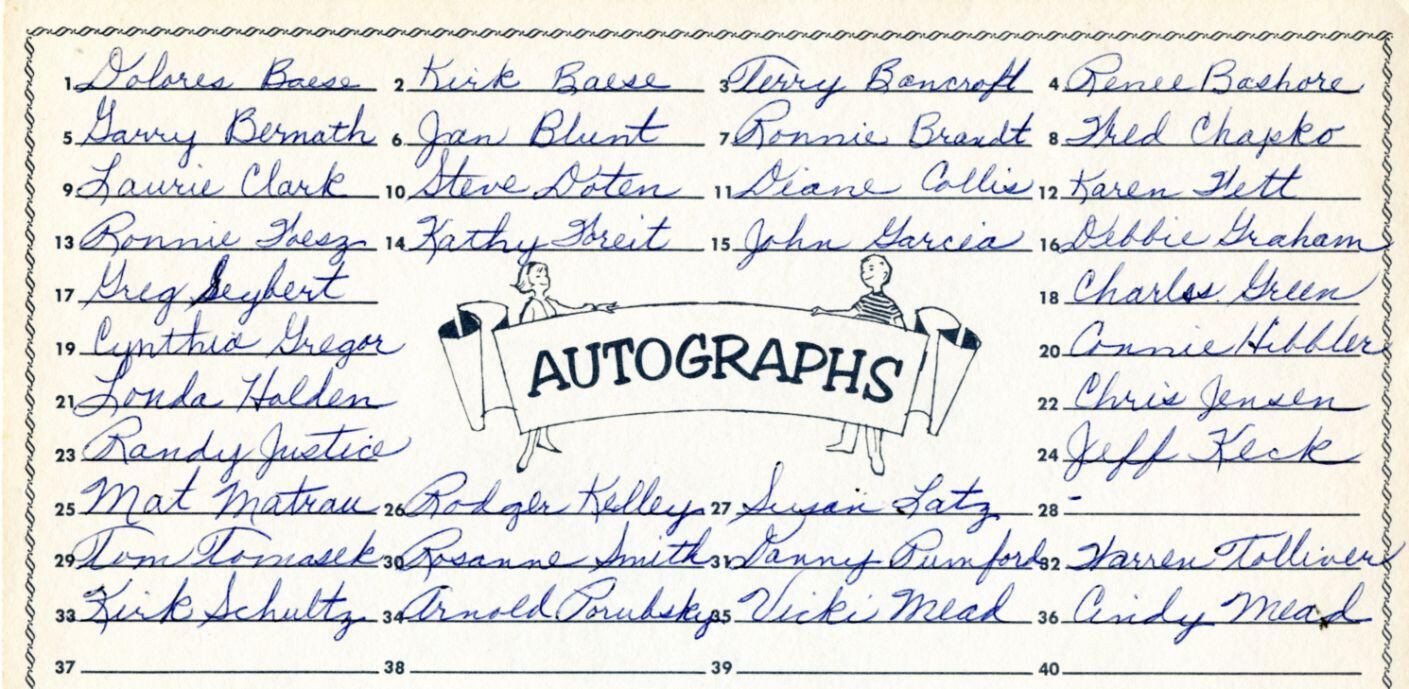 1 Dolores Baese 2 Kirk Baese 3 Terry Bancroft 4 Renee Bashore
5 Garry Bernath 6 Jan Blunt 7 Ronnie Brandt 8 Fred Chapko
9 Laurie Clark 10 Steve Doten 11 Diane Collis 12 Karen Fett
13 Ronnie Foesz 14 Kathy Foreit 15 John Garcia 16 Debbie Graham
17 Greg Seybert 18 Charles Green
19 Cynthia Gregor 20 Connie Hibbler
AUTOGRAPHS
21 Londa Holden 22 Chris Jensen
23 Randy Justice 24 Jeff Keck
25 Mat Matrau 26 Rodger Kelley 27 Susan Latz 28 -
29 Tom Tomasek 30 Rosanne Smith 31 Danny Pumford 32 Warren Tolliver
33 Kirk Schultz 34 Arnold Porubsky 35 Vicki Mead 36 Cindy Mead
37 38 39 40